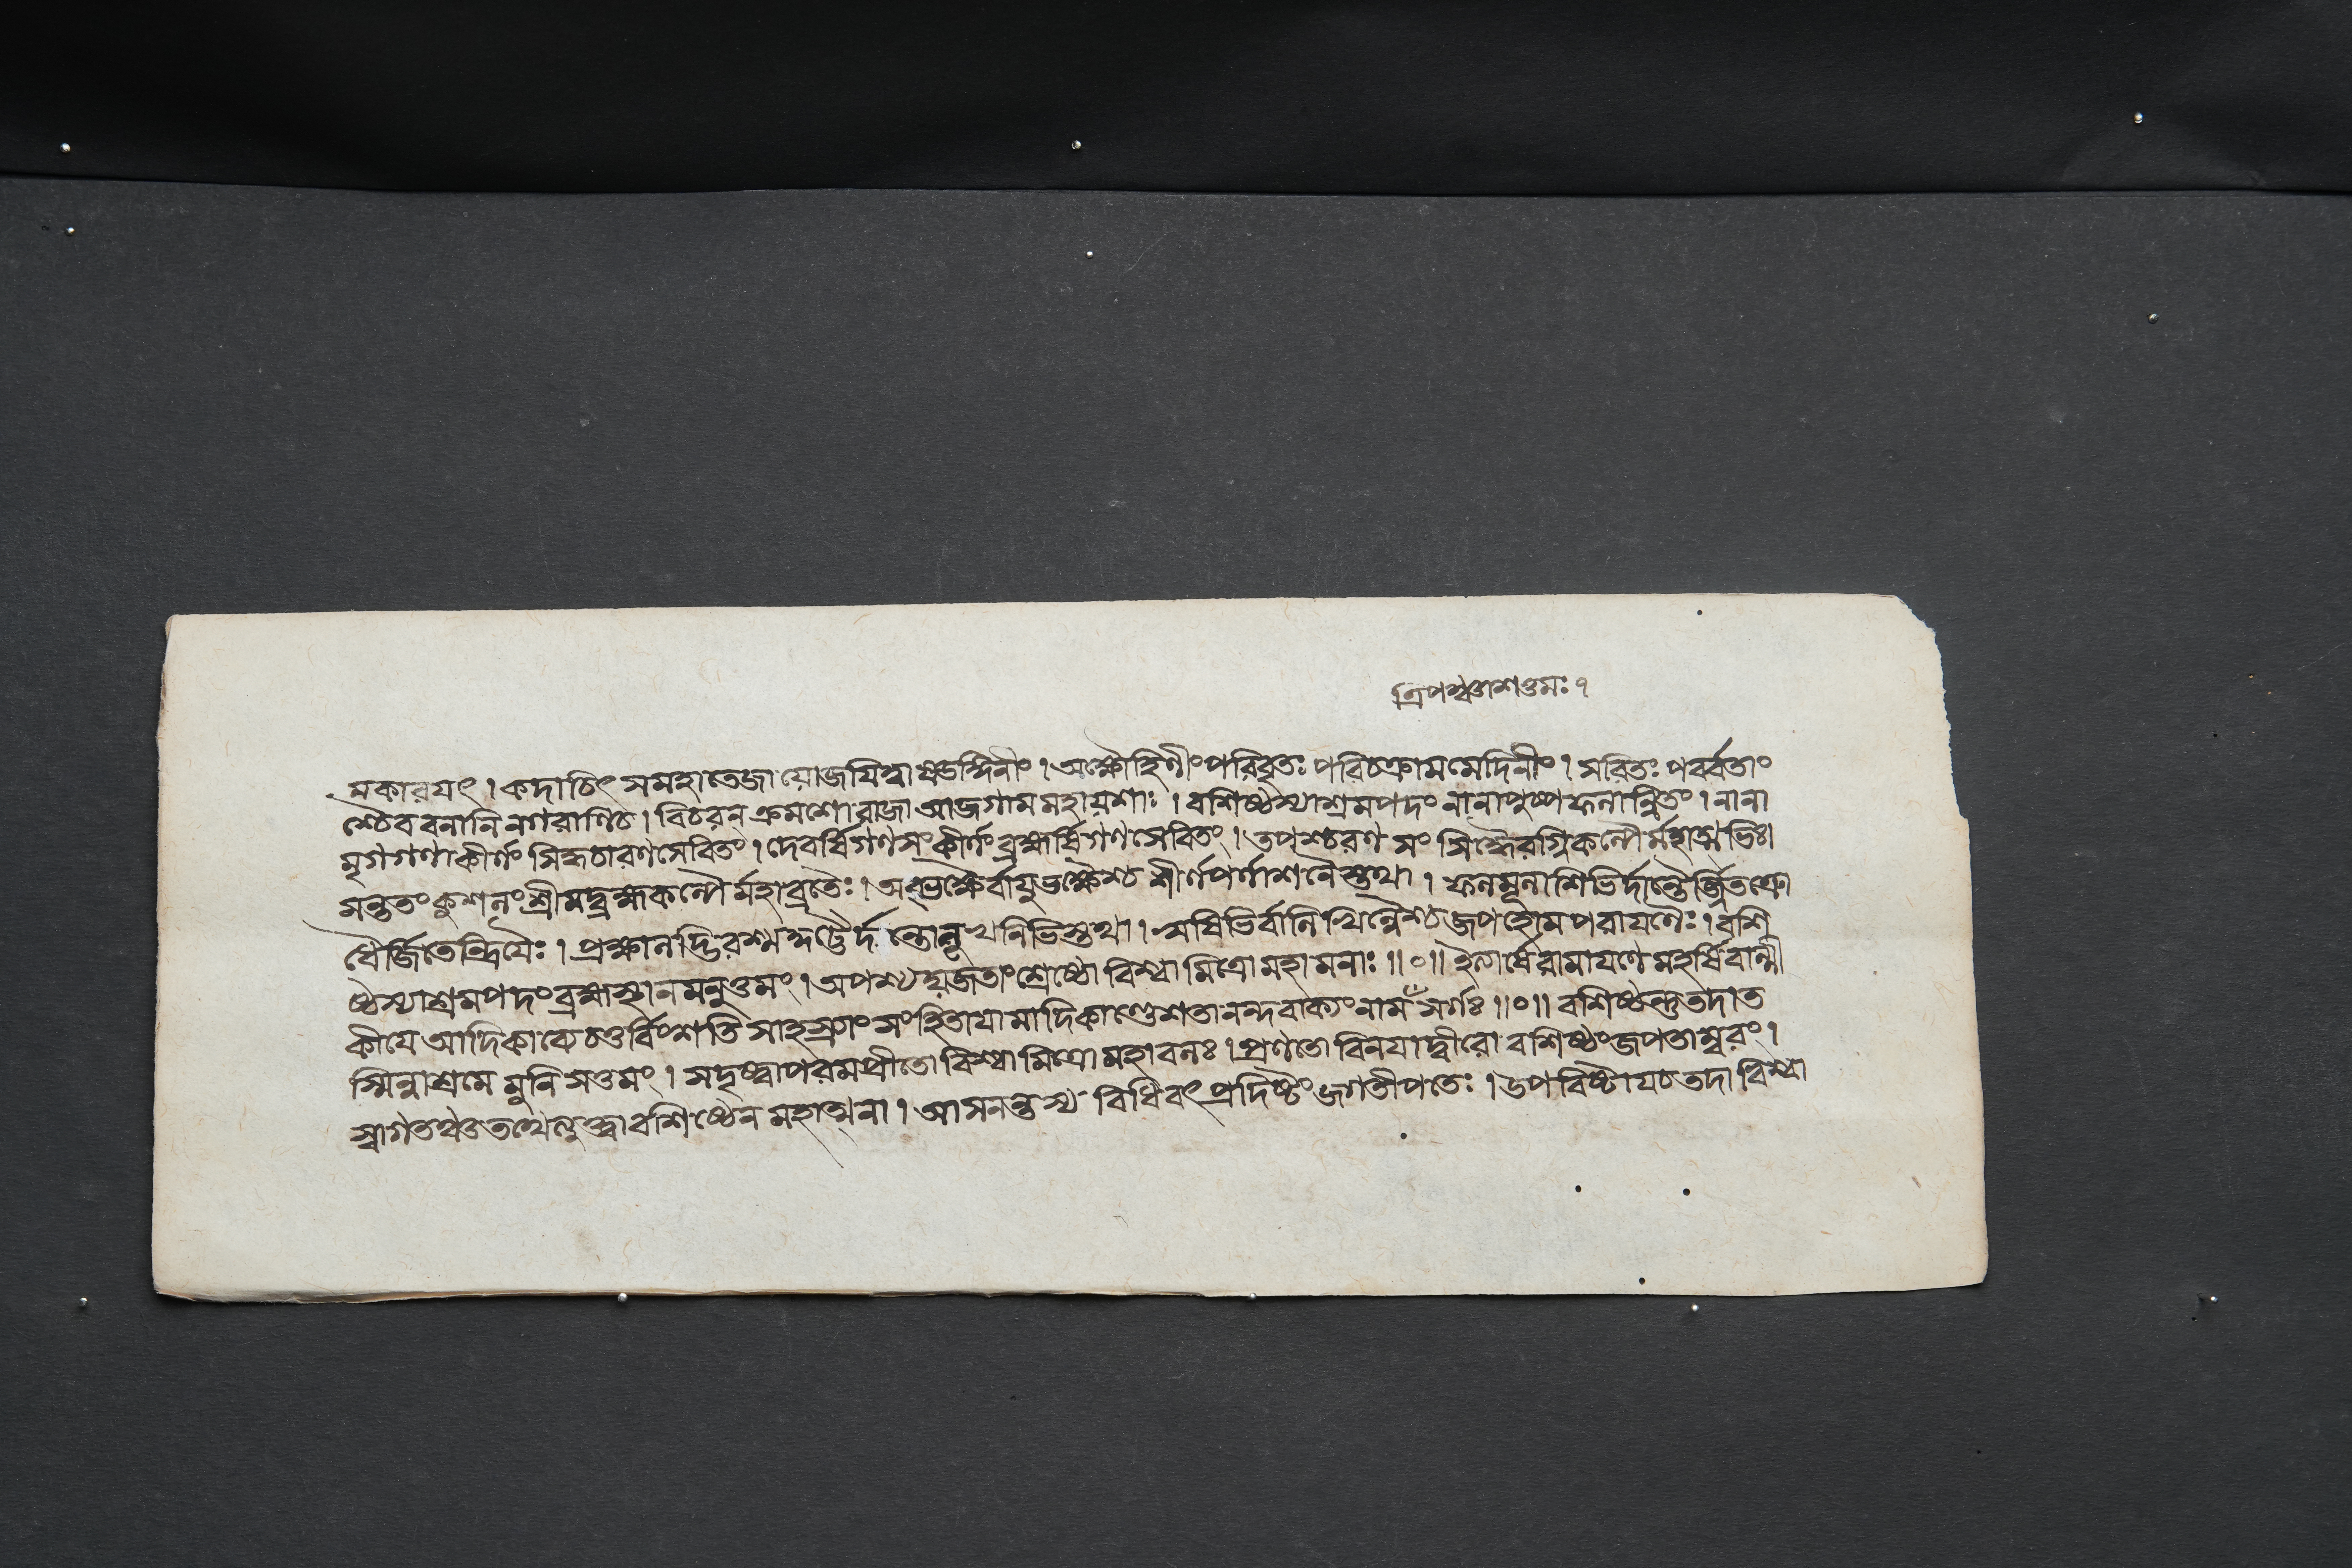 ত্রিপঞ্চাশত্তমঃ ৭
মকারযৎ । কদাচিৎ সমহাতেজা যোজযিত্বা বরূথিনীং । অক্ষৌহিণীং পরিবৃতঃ পরিচক্রাম মেদিনীং । সরিতঃ পর্ব্বতাং
শ্চৈব বনানি নগরাণিচ । বিচরন্ ক্রমশো রাজা আজগাম মহায়শাঃ । বশিষ্ঠস্যাশ্রমপদং নানাপুষ্পফলান্বিতং । নানা
মৃগগণাকীর্ণং সিদ্ধচারণসেবিতং । দেবর্ষিগণসংকীর্ণং ব্রহ্মর্ষিগণসেবিতং । তপশ্চরণ সং সিদ্ধৈরগ্নিকল্পৈর্মহাত্মভিঃ।
সন্ততং কুশলং শ্রীমদ্ব্রহ্মকল্পৈর্মহাব্রতৈঃ । অব্ভক্ষৈর্বাযুভক্ষৈশ্চ শীর্ণপর্ণাশনৈস্তথা । ফলমূলাশিভির্দান্তৈর্জ্জিতক্রো
ধৈর্জিতেন্দ্রিযৈঃ । প্রক্ষালদ্ভিরশ্মকুট্টৈর্দন্তোলূখলিভিস্তথা । ঋষিভির্বালিখিল্লৈশ্চ জপহোমপরাযণৈঃ । বশি
ষ্ঠস্যাশ্রমপদং ব্রহ্মস্থানমনুত্তমং । অপশ্যয্যজতাং শ্রেষ্ঠো বিশ্বামিত্রো মহামনাঃ ॥০॥ ইত্যার্ষে রামাযণে মহর্ষিবাল্মী
কীযে আদিকাব্যে চতুর্বিংশতি সাহস্র্যাং সংহিতাযামাদিকাণ্ডে শতানন্দবাক্যং নাম সর্গঃ ॥০॥ বশিষ্ঠন্তু তদাত
স্মিন্নাশ্রমে মুনিসত্তমং । সদৃষ্ট্বা পরমপ্রীতো বিশ্বামিত্রো মহাবলঃ । প্রণতো বিনযাদ্বীরো বশিষ্ঠং জপতাম্বরং ।
স্বাগতঞ্চ তত্থেত্যুক্ত্বা বশিষ্ঠেন মহাত্মনা । আসনন্তস্য বিধিবৎ প্রদিষ্টং জগতীপতেঃ । উপবিষ্টাযচ তদা বিশ্বা